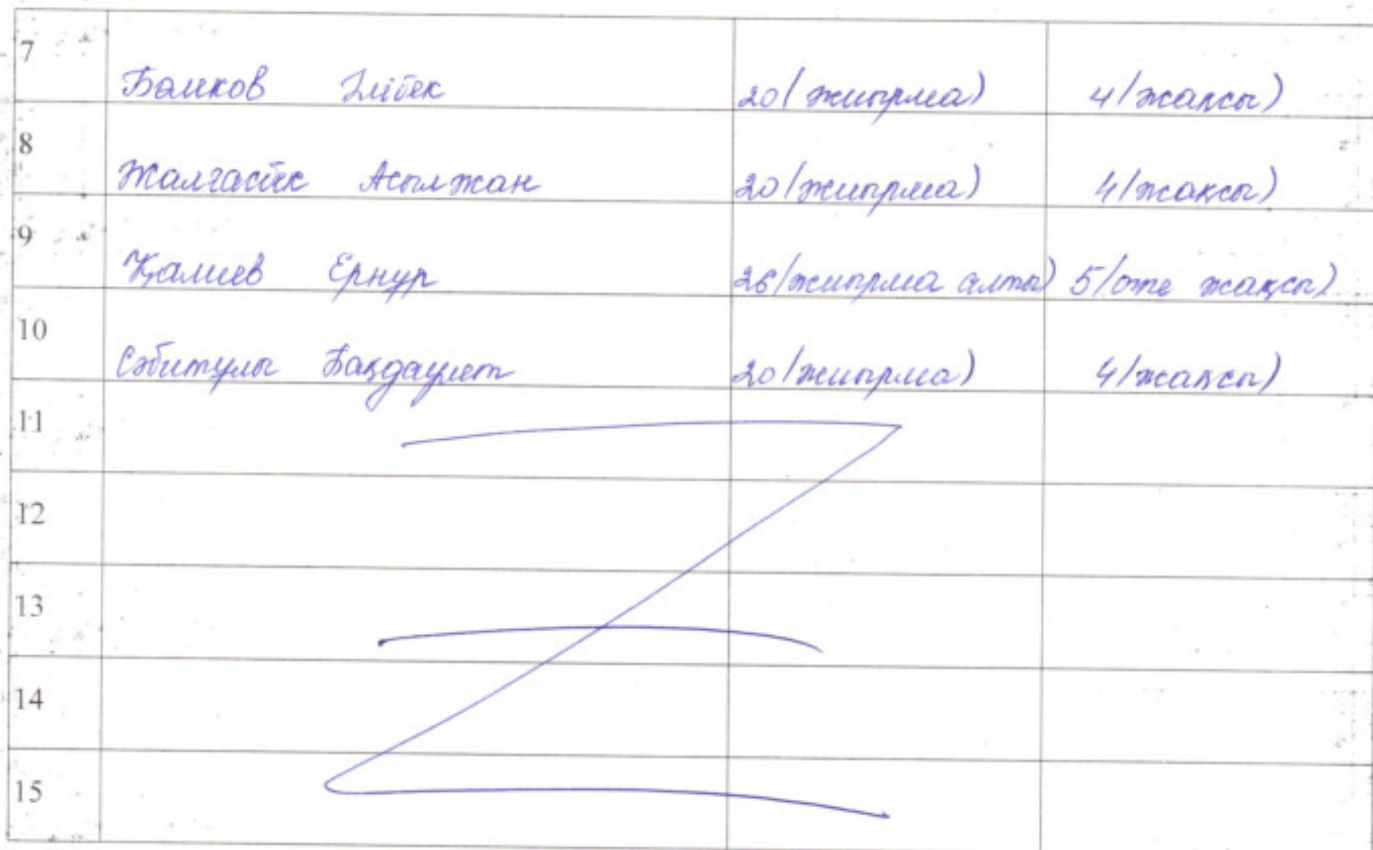 7 Баиков Әлібек 20 (жиырма) 4 (жақсы)
8 Жалғасбек Асылжан 20 (жиырма) 4 (жақсы)
9 Қалиев Ернур 26 (жиырма алты) 5 (өте жақсы)
10 Сәбитулы Бақдаулет 20 (жиырма) 4 (жақсы)
11
12
13
14
15